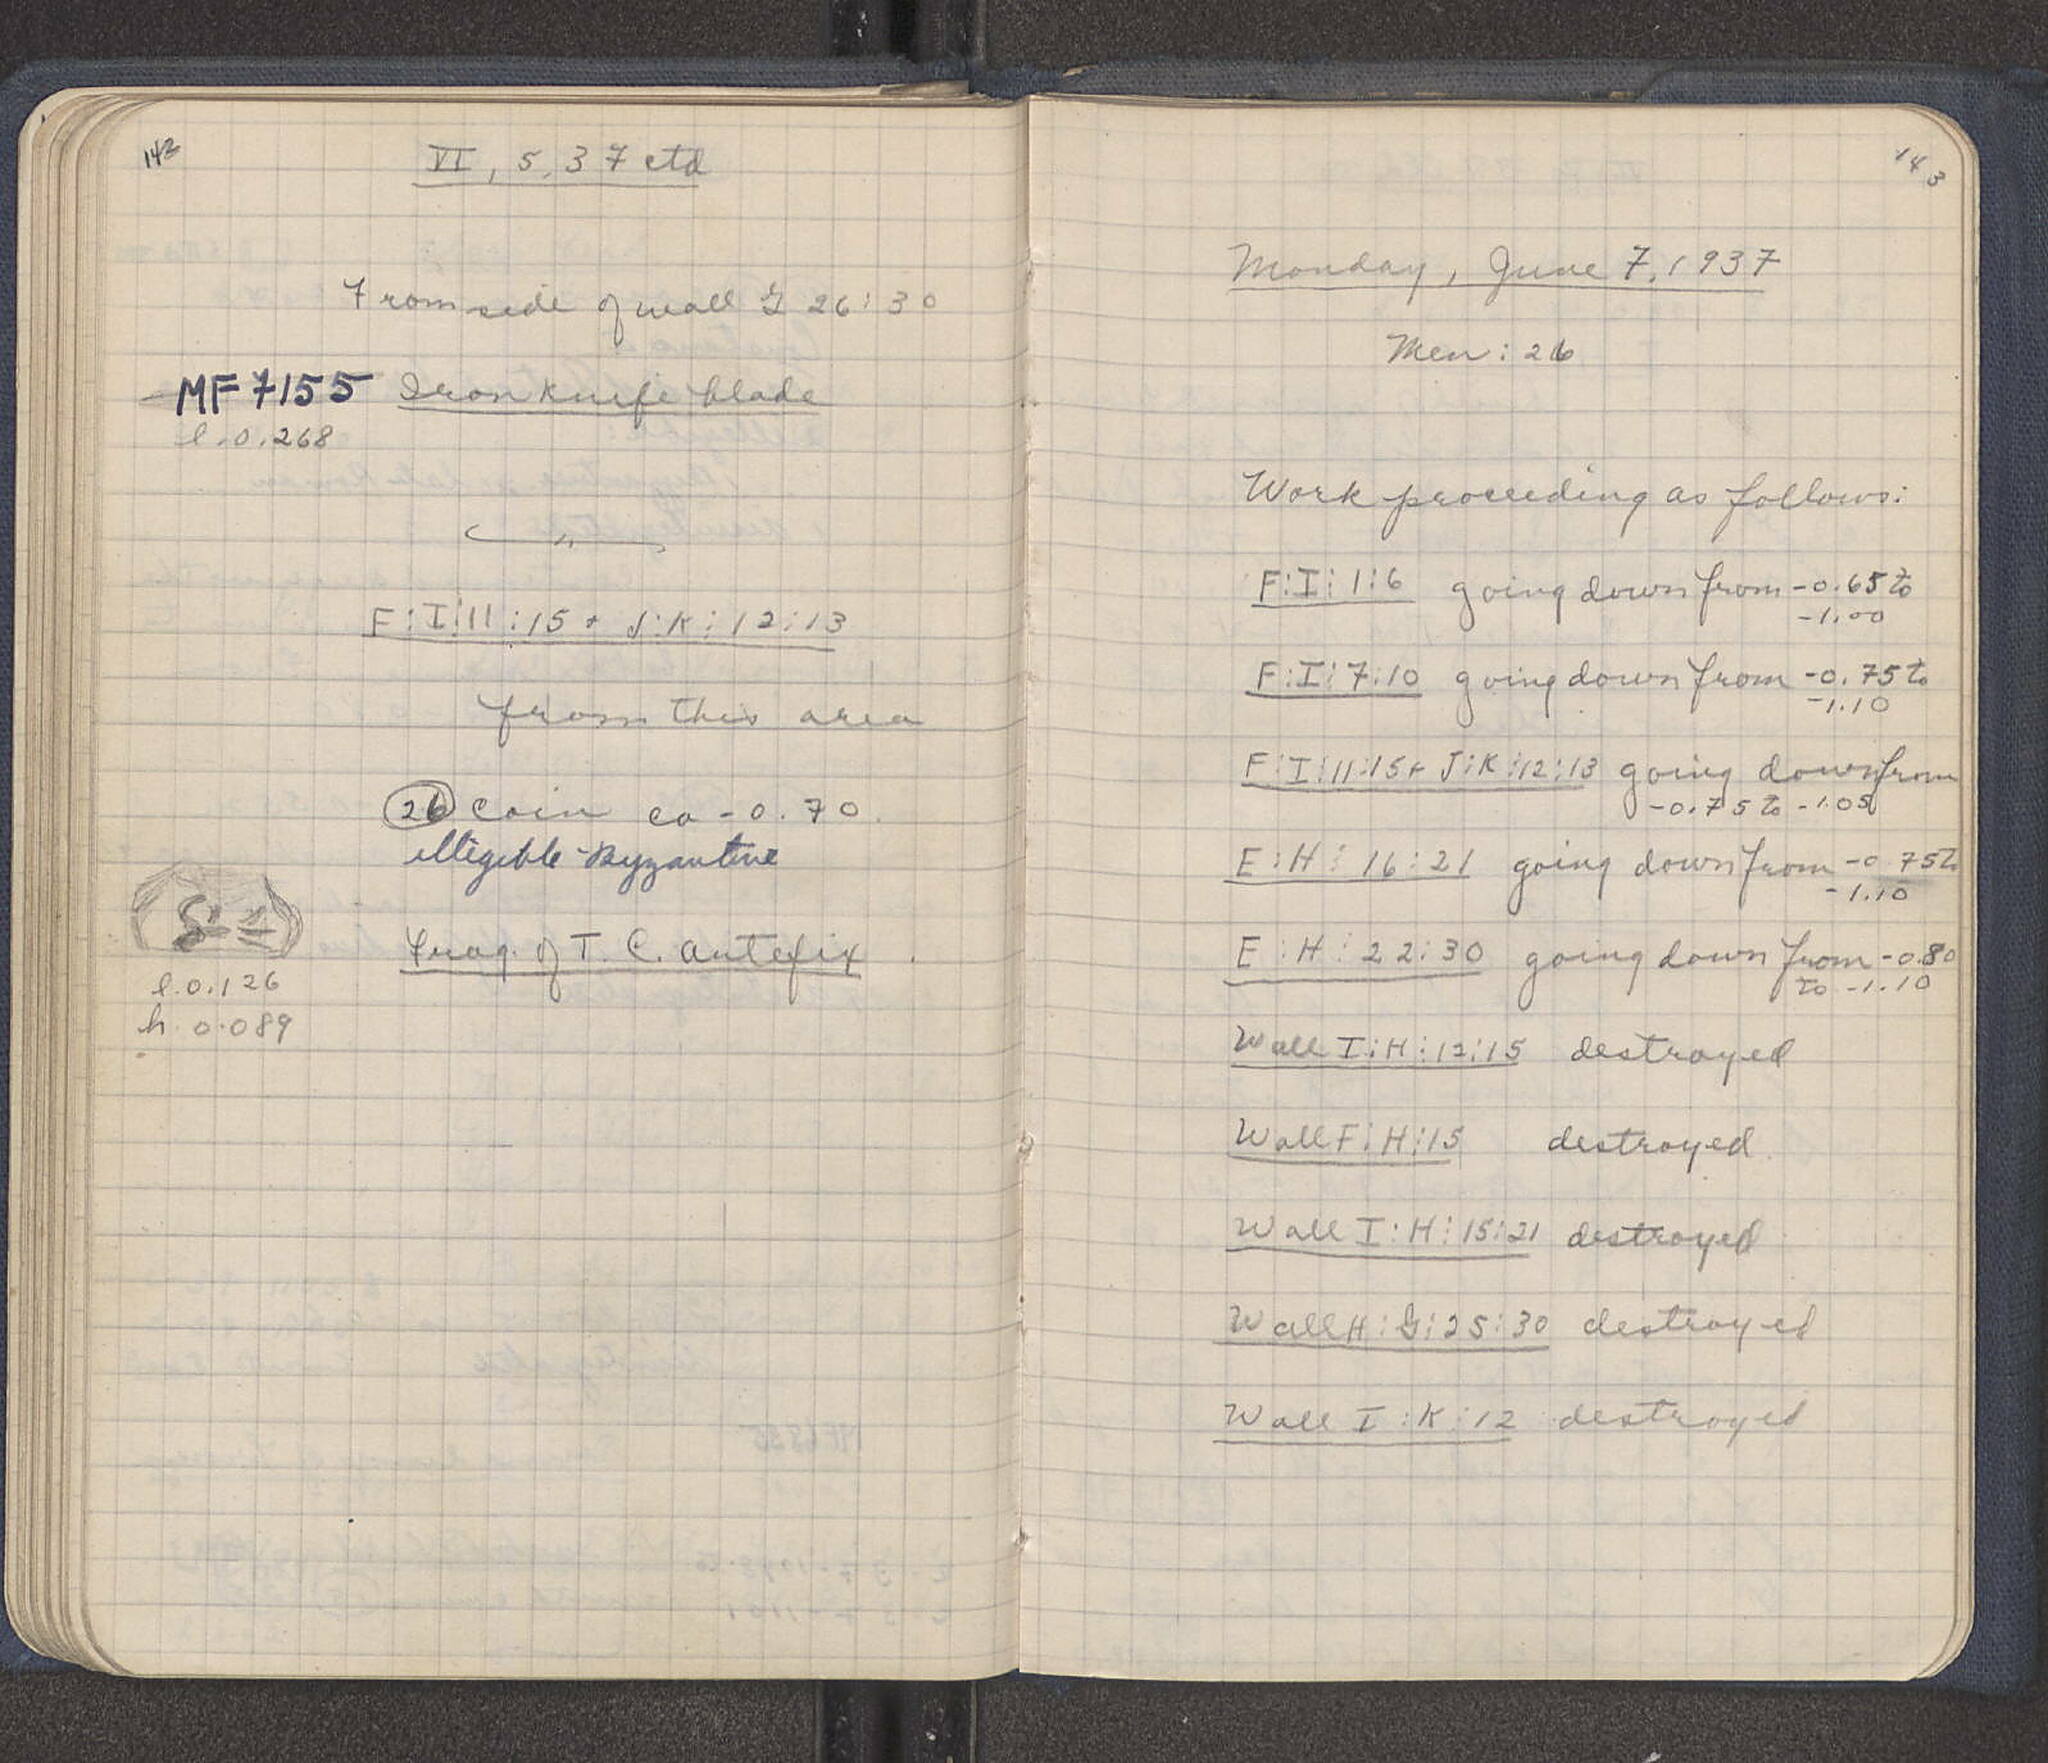 142
VI, 5, 37 ctd
From side of wall G 26:30
MF 7155 Iron knife blade
l. 0.268
F:I:11:15 + J:K:12:13
from this area
26 Coin ca -0.70.
illegible - Byzantine
Frag. of T.C. antefix.
l. 0.126
h. 0.089
143
Monday, June 7, 1937
Men: 26
Work proceeding as follows:
F:I:1:6 going down from -0.65 to
-1.00
F:I:7:10 going down from -0.75 to
-1.10
F:I:11:15 + J:K:12:13 going down from
-0.75 to -1.05
E:H:16:21 going down from -0.75 to
-1.10
E:H:22:30 going down from -0.80
to -1.10
Wall I:H:12:15 destroyed
Wall F:H:15 destroyed
Wall I:H:15:21 destroyed
Wall H:G:25:30 destroyed
Wall I:K:12 destroyed